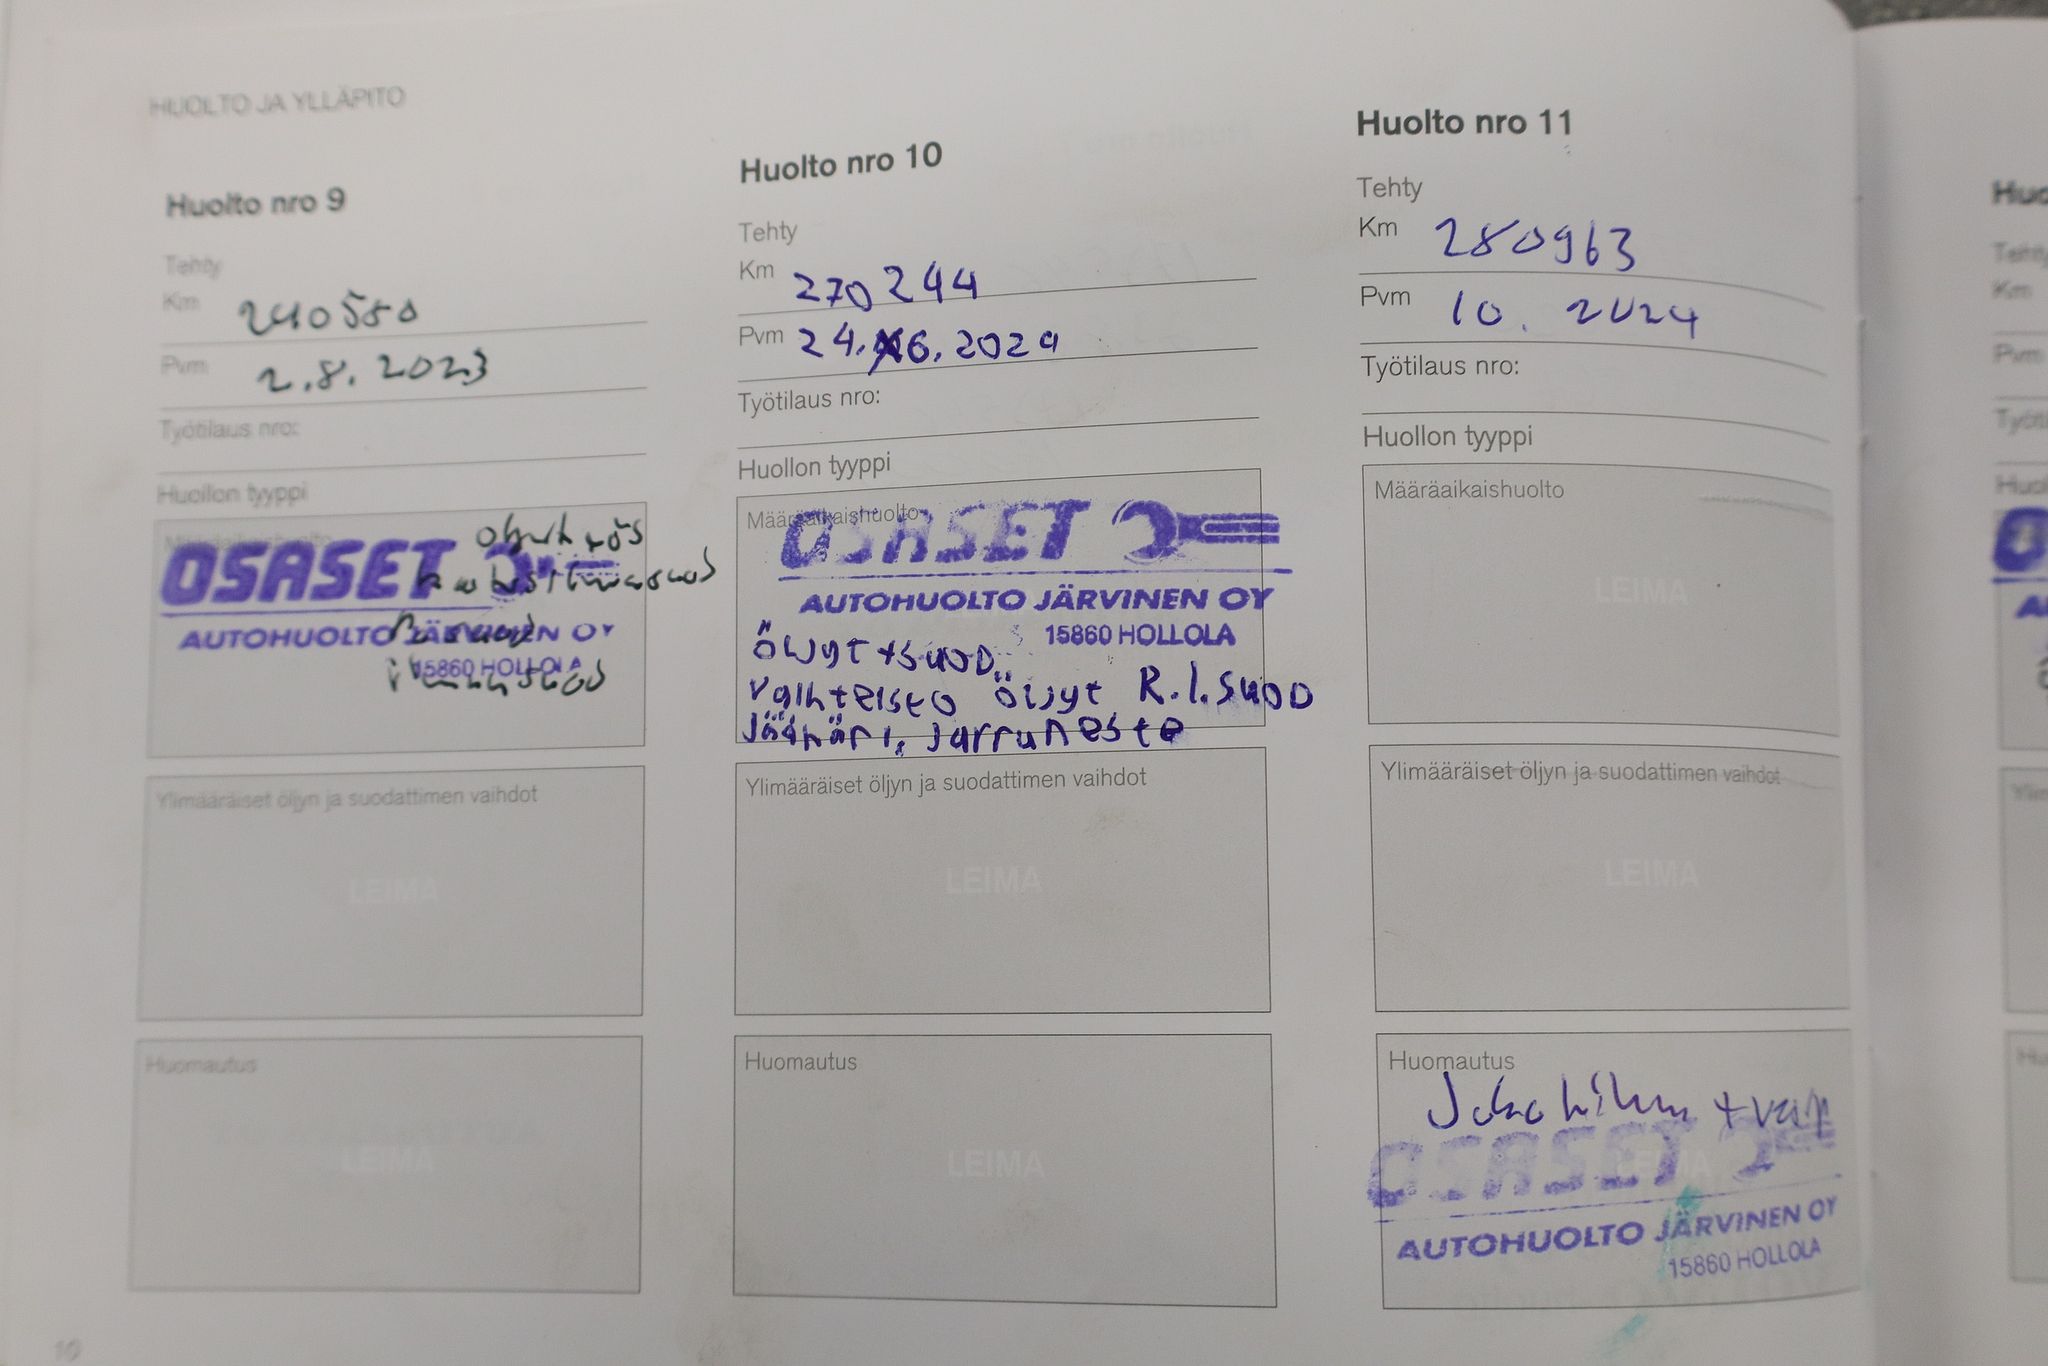 HUOLTO JA YLLÄPITO
Huolto nro 9
Tehty
Km 240580
Pvm 2.8.2023
Työtilaus nro:
Huollon tyyppi
Määräaikaishuolto
OSASET
AUTOHUOLTO JÄRVINEN OY
15860 HOLLOLA
Ylimääräiset öljyn ja suodattimen vaihdot
LEIMA
Huomautus
LEIMA
10
Huolto nro 10
Tehty
Km 270 244
Pvm 24.6.2024
Työtilaus nro:
Huollon tyyppi
Määräaikaishuolto
OSASET
AUTOHUOLTO JÄRVINEN OY
15860 HOLLOLA
Öljyt + suod.
Vaihteisto öljyt R.I.suod
Jäähäri, Jarruneste
Ylimääräiset öljyn ja suodattimen vaihdot
LEIMA
Huomautus
LEIMA
Huolto nro 11
Tehty
Km 280963
Pvm 10. 2024
Työtilaus nro:
Huollon tyyppi
Määräaikaishuolto
LEIMA
Ylimääräiset öljyn ja suodattimen vaihdot
LEIMA
Huomautus
Jako hihna + vesip
OSASET
LEIMA
AUTOHUOLTO JÄRVINEN OY
15860 HOLLOLA
Km
Pvm